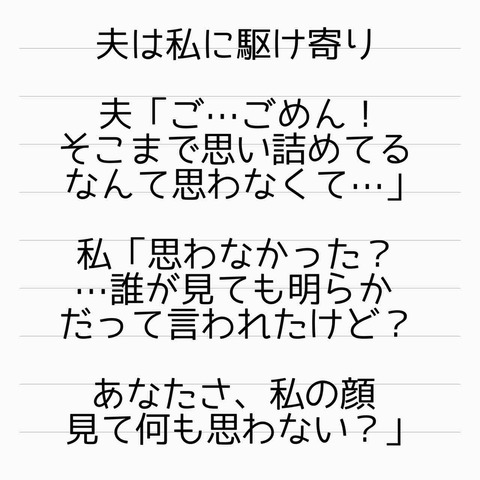 夫は私に駆け寄り
夫「ご…ごめん！
そこまで思い詰めてる
なんて思わなくて…」
私「思わなかった？
…誰が見ても明らか
だって言われたけど？
あなたさ、私の顔
見て何も思わない？」